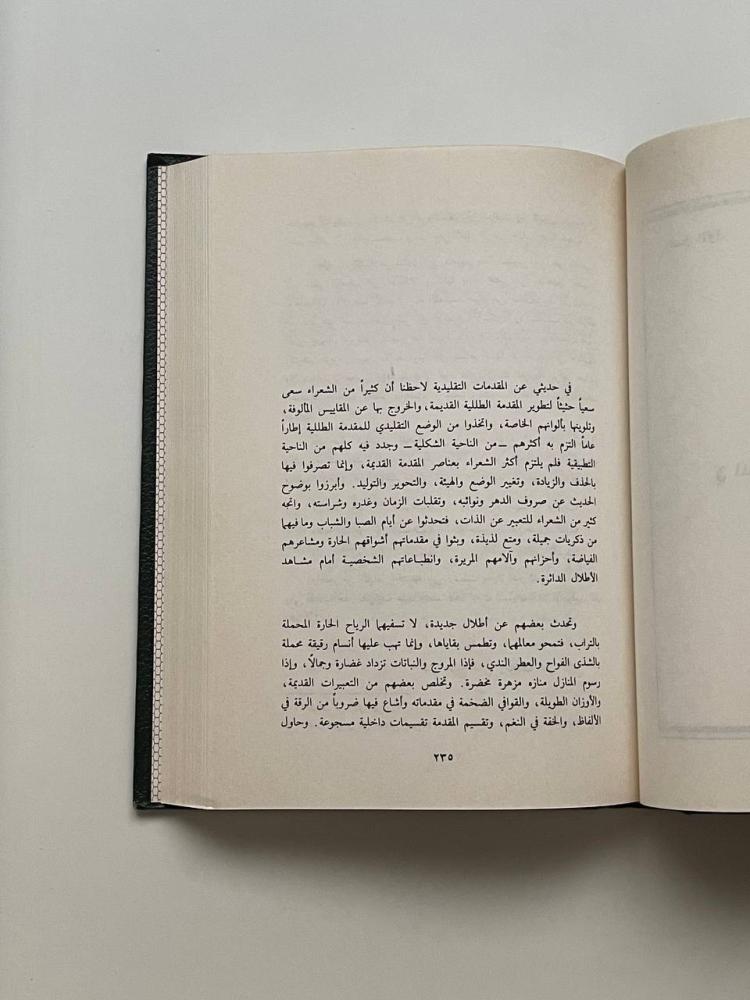 في حديثي عن المقدمات التقليدية لاحظنا أن كثيراً من الشعراء سعى
سعياً حثيثاً لتطوير المقدمة الطللية القديمة، والخروج بها عن المقاييس المألوفة،
وتلوينها بألوانهم الخاصة، واتخذوا من الوضع التقليدي للمقدمة الطللية إطاراً
عاماً التزم به أكثرهم ــ من الناحية الشكلية ــ وجدد فيه كلهم من الناحية
التطبيقية فلم يلتزم أكثر الشعراء بعناصر المقدمة القديمة، وإنما تصرفوا فيها
بالحذف والزيادة، وتغيير الوضع والهيئة، والتحوير والتوليد. وأبرزوا بوضوح
الحديث عن صروف الدهر ونوائبه، وتقلبات الزمان وغدره وشراسته، واتجه
كثير من الشعراء للتعبير عن الذات، فتحدثوا عن أيام الصبا والشباب وما فيهما
من ذكريات جميلة، ومتع لذيذة، وبثوا في مقدماتهم أشواقهم الحارة ومشاعرهم
الفياضة، وأحزانهم وآلامهم المريرة، وانطباعاتهم الشخصية أمام مشاهد
الأطلال الداثرة.
وتحدث بعضهم عن أطلال جديدة، لا تسفيهما الرياح الحارة المحملة
بالتراب، فتمحو معالمهما، وتطمس بقاياها، وإنما تهب عليها أنسام رقيقة محملة
بالشذى الفواح والعطر الندي، فإذا المروج والنباتات تزداد غضارة وجمالاً، وإذا
رسوم المنازل منازه مزهرة مخضرة. وتخلص بعضهم من التعبيرات القديمة،
والأوزان الطويلة، والقوافي الضخمة في مقدماته وأشاع فيها ضروباً من الرقة في
الألفاظ، والخفة في النغم، وتقسيم المقدمة تقسيمات داخلية مسجوعة. وحاول
٢٣٥